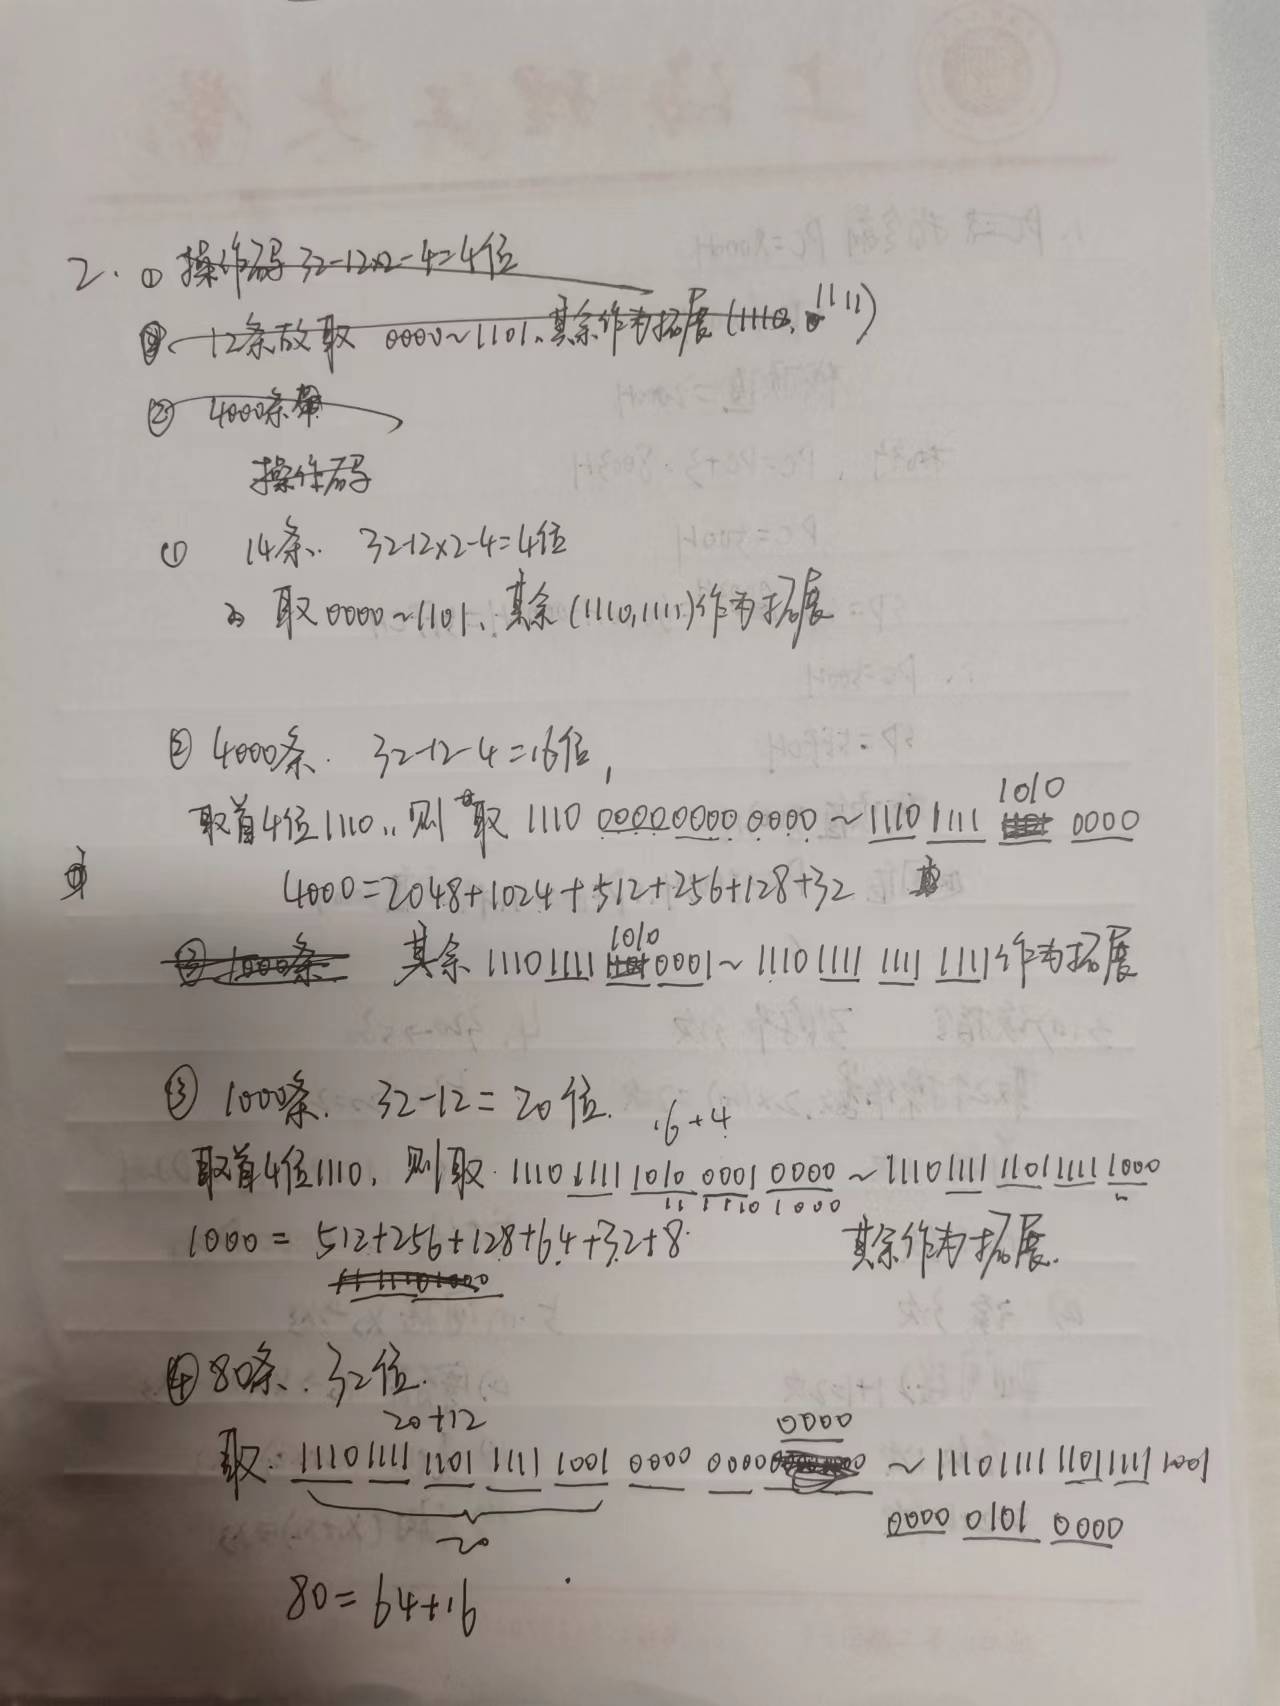 2. ① 操作码 32-12×2-4=4位
12条故取 0000~1101、其余作为拓展(1110, 1111)
② 4000条
操作码
① 14条、 32-12×2-4=4位
取0000~1101、其余(1110,1111)作为拓展
② 4000条. 32-12-4=16位,
1010
取首4位1110,, 则取 1110 0000 0000 0000 ~ 1110 1111 0000
4000=2048+1024+512+256+128+32
1010
③ 1000条 其余 1110 1111 0001~ 1110 1111 1111 1111作为拓展
③ 1000条. 32-12=20位. 16+4
取首4位1110, 则取 1110 1111 1010 0001 0000 ~ 1110 1111 1101 1111 1000
11 1110 1000
1000 = 512+256+128+64+32+8. 其余作为拓展.
11 1110 1000
④ 80条、. 32位.
20+12
0000
取: 1110 1111 1101 1111 1001 0000 0000 ~ 1110 1111 1101 1111 1001
0000 0101 0000
20
80=64+16